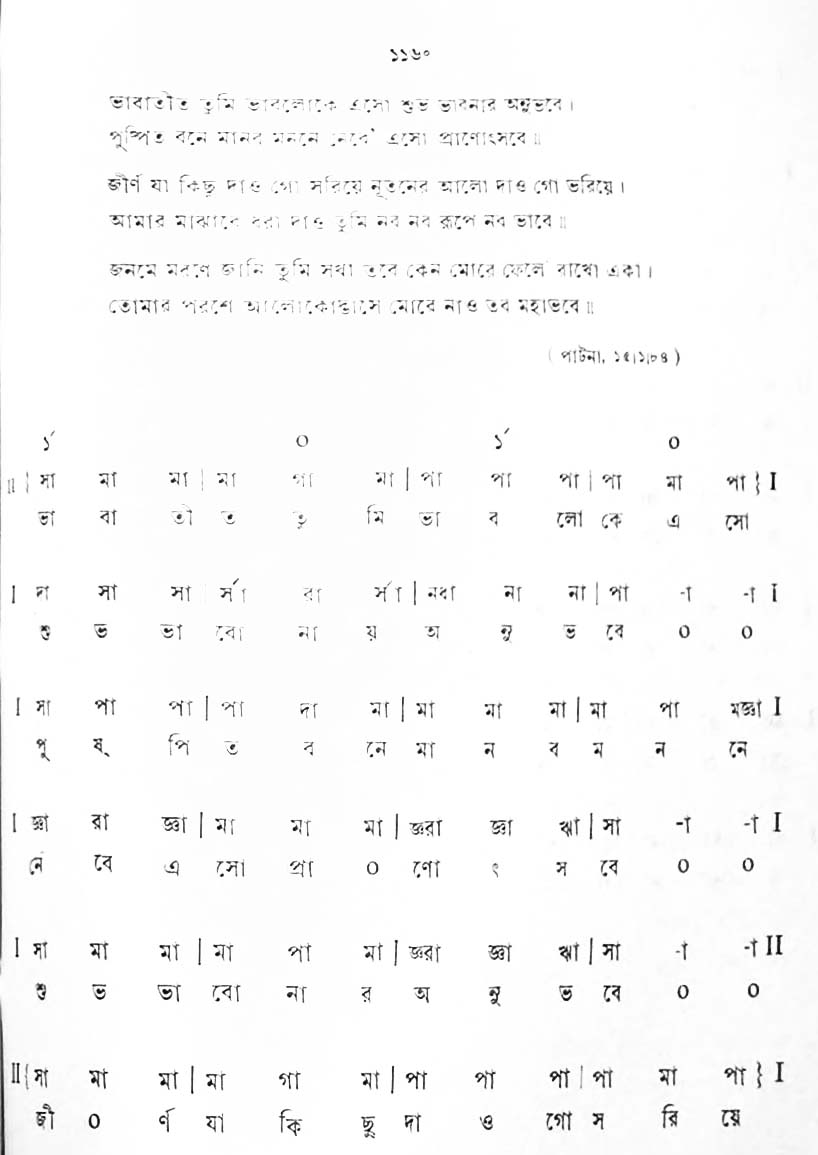 ১১৬০
ভাবাতীত তুমি ভাবলোকে এসো শুভ ভাবনার অনুভবে।
পুষ্পিত বনে মানব মননে নেবে' এসো প্রাণোৎসবে॥
জীর্ণ যা কিছু দাও গো সরিয়ে নূতনের আলো দাও গো ভরিয়ে।
আমার মাঝারে ধরা দাও তুমি নব নব রূপে নব ভাবে॥
জনমে মরণে জানি তুমি সখা তবে কেন মোরে ফেলে রাখো একা।
তোমার পরশে আলোকোদ্ভাসে মোরে নাও তব মহাভবে॥
( পাটনা, ১৫।১।৮৪ )
১́ ০ ১́ ০
॥ { সা মা মা | মা গা মা | পা পা পা | পা মা পা } I
ভা বা তী ত তু মি ভা ব লো কে এ সো
I দা সা সা র্সা রা র্সা | নধা না না | পা -া -া I
শু ভ ভা বো না য় অ নু ভ বে ০ ০
I সা পা পা | পা দা মা | মা মা মা | মা পা মজ্ঞা I
পু ষ্ পি ত ব নে মা ন ব ম ন নে
I জ্ঞা রা জ্ঞা | মা মা মা | জ্ঞরা জ্ঞা ঋা | সা -া -া I
নে বে এ সো প্রা ০ ণো ৎ স বে ০ ০
I সা মা মা | মা পা মা | জ্ঞরা জ্ঞা ঋা | সা -া -া II
শু ভ ভা বো না র অ নু ভ বে ০ ০
II { সা মা মা | মা গা মা | পা পা পা | পা মা পা } I
জী ০ র্ণ যা কি ছু দা ও গো স রি য়ে